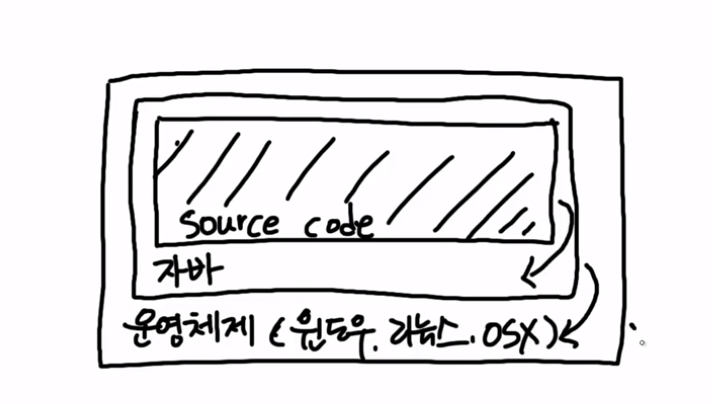 source code
자바
운영체제 (윈도우, 리눅스, OSX)